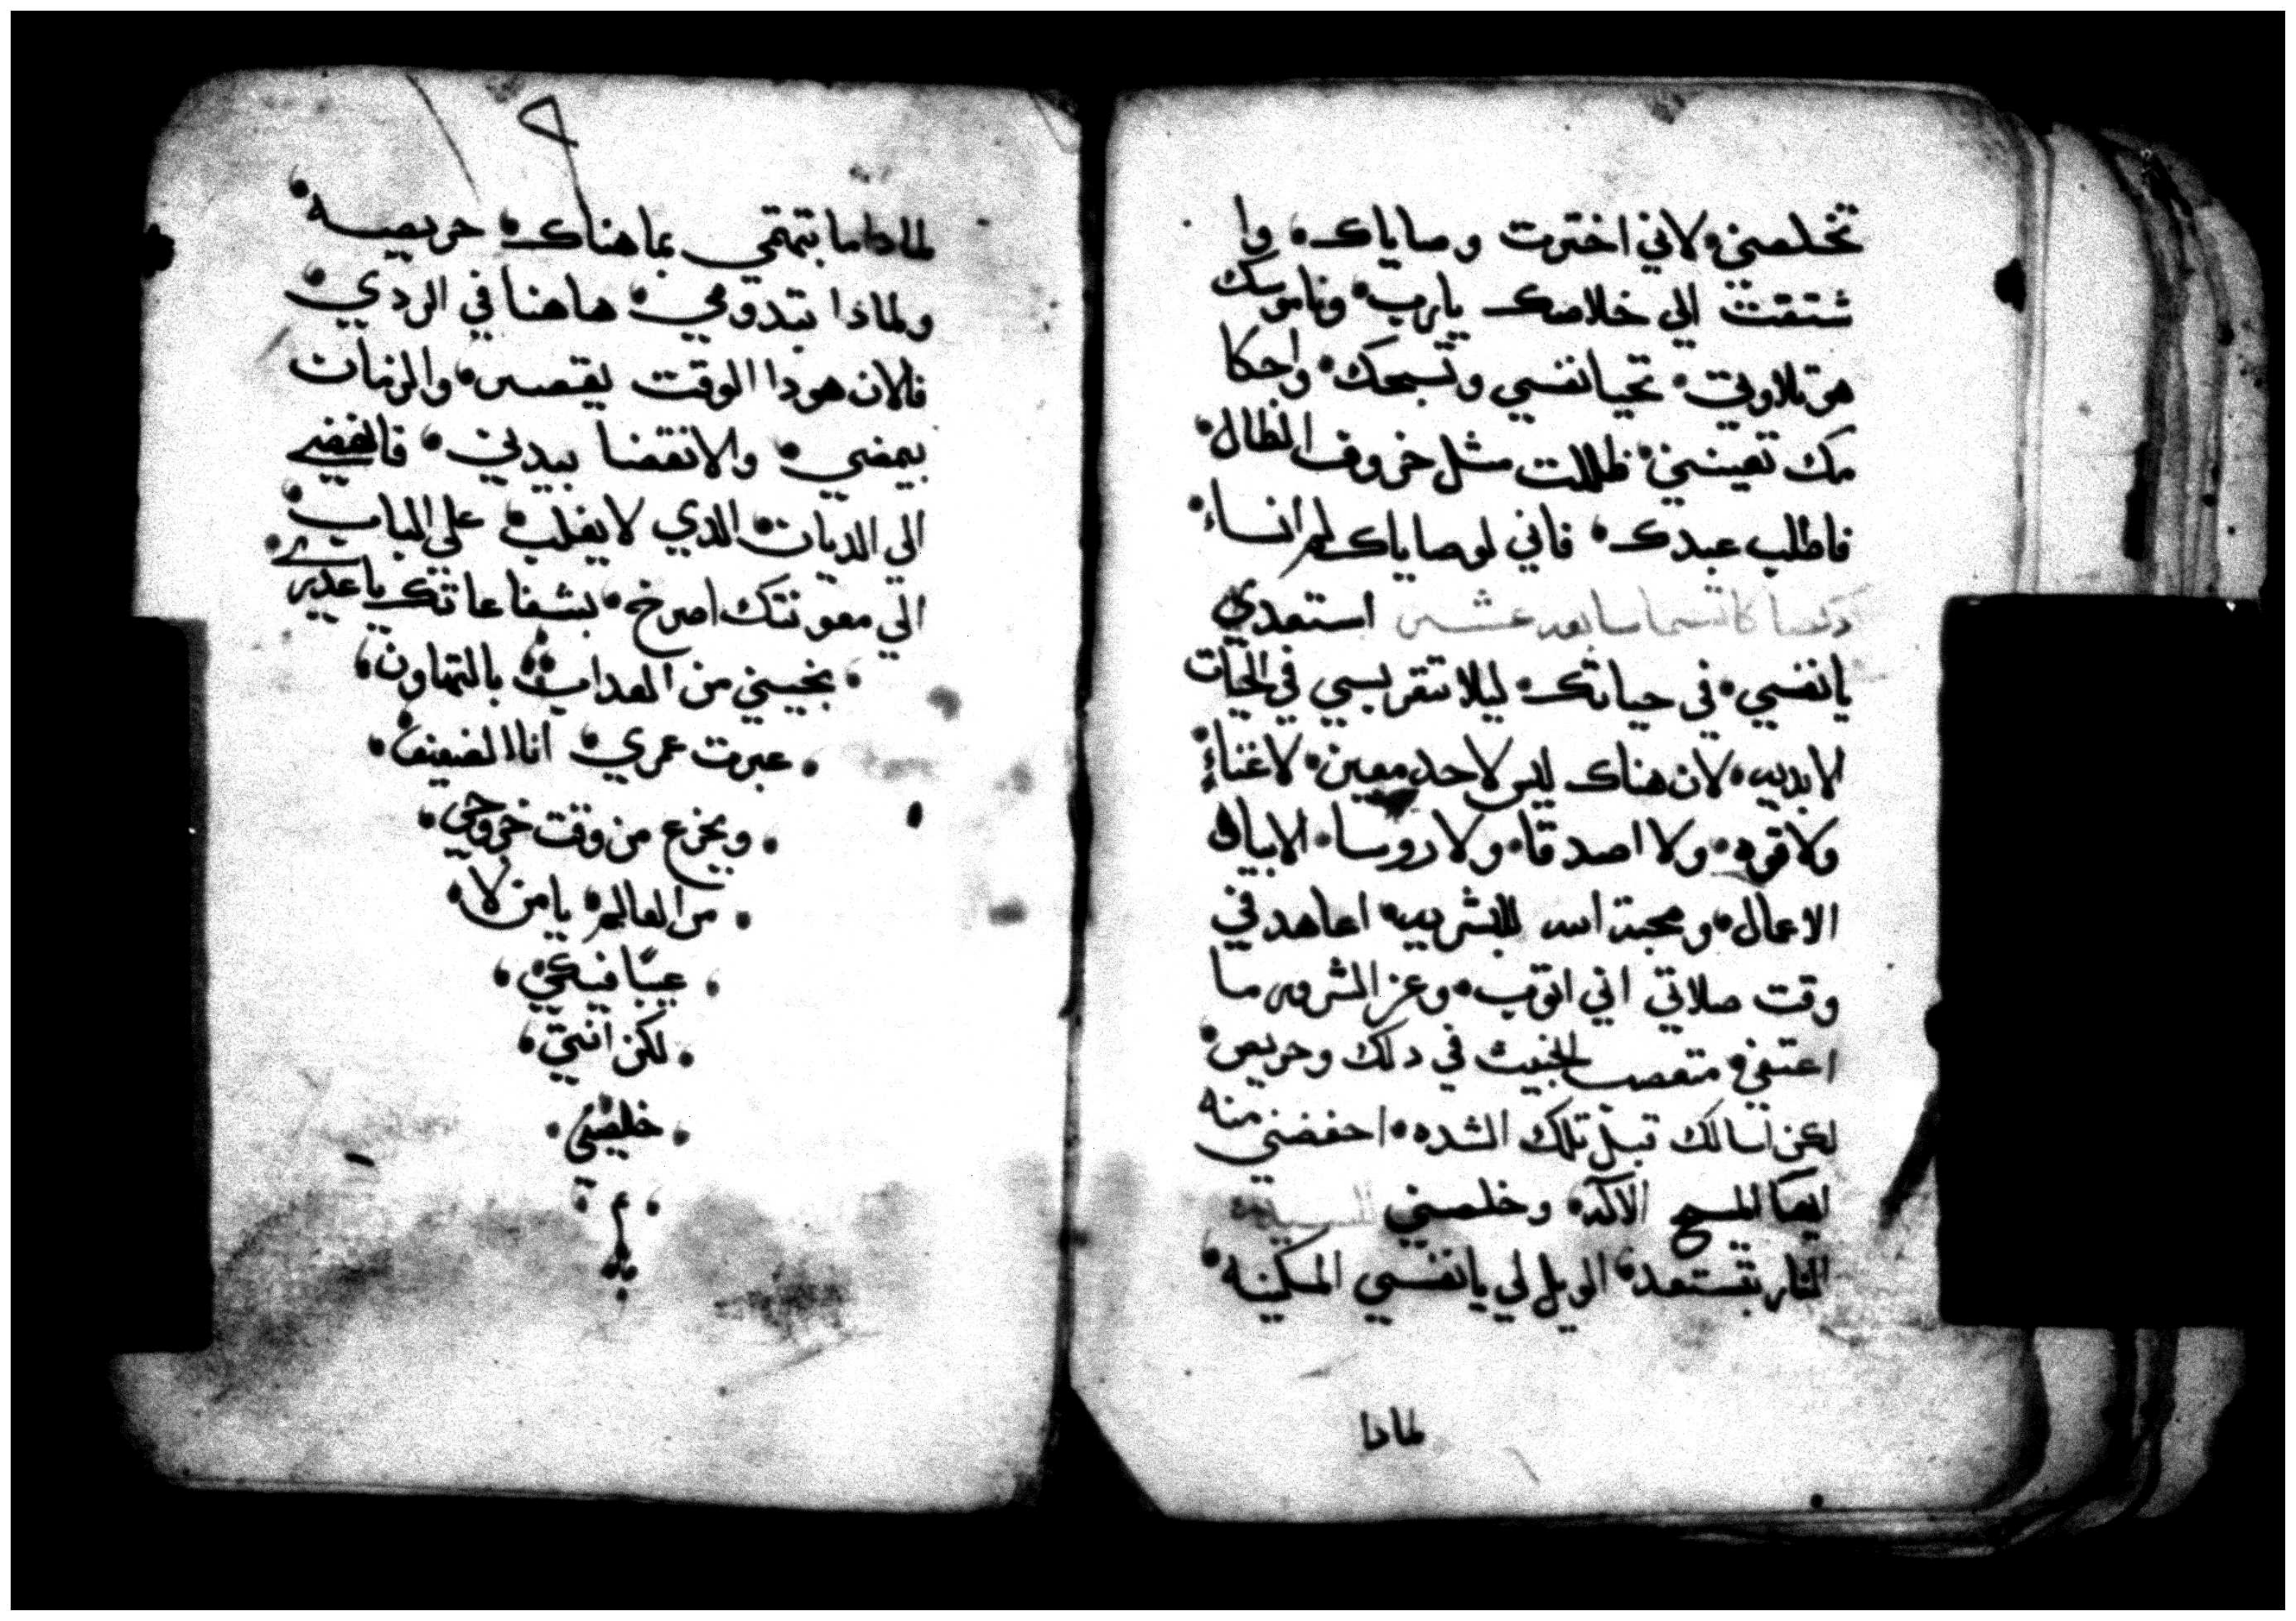 تخلصني لاني اخترت وصاياك وا
شتقت الي خلاصك يارب وناموسك
هو تلاوتي تحيا نفسي وتسبحك واحكا
مك تعينني ظللت مثل خروف الظال
فاطلب عبدك فاني لوصاياك لم انساء
استعدي
يانفسي في حياتك ليلا تتقربسي في الحيات
لابديه لان هناك ليس لاحد معين لاغناء
ولا قوه ولا اصدقا ولا روسا الابيان
الاعمال ومحبة الله للبشريه اعاهد في
وقت صلاتي اني اتوب وعز الشرور ما
اعتفي متعصب الخبيث في دلك وحريص
لكن اسالك قبل تلك الشده احفضني منه
ايها المسيح الاله وخلصني
النار بتستعد الويل لي يانفسي المسكينه
لمادا
لمادا ما بتهتمي بما هناك حريصه
ولمادا بتدومي هاهنا في الردي
فالان هودا الوقت يقصر والزمان
بيمضي والانقضا بيدني فانهضي
الي الديان الدي لا يغلب علي الباب
الي معونتك اصرخ بشفاعاتك ياعدري
نجيني من العداب بالتهاون
عبرت عمري انا الضعيف
وبخزع من وقت خروجي
من العالم يا من لا
عيبا فيكي
لكن انتي
خلصيني